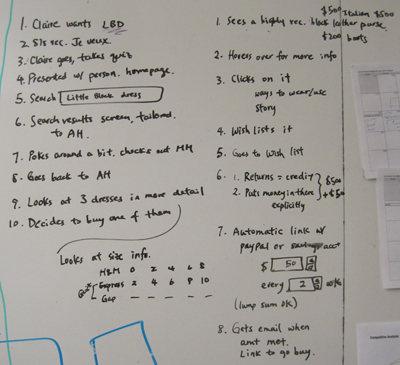 1. Claire wants LBD
2. S/s rec. Je veux.
3. Claire goes, takes quiz
4. Presented w/ person. homepage.
5. Search Little Black dress
6. Search results screen, tailored
to AH.
7. Pokes around a bit. checks out MM
8. Goes back to AH
9. Looks at 3 dresses in more detail
10. Decides to buy one of them
Looks at size info.
H&M 0 2 4 6 8
Express 2 4 6 8 10
Gap — — — — —
$500 Italian $500
1. Sees a highly rec. black leather purse
$200 boots
2. Hovers over for more info
3. Clicks on it
ways to wear/use
story
4. Wish lists it
5. Goes to wish list
6. 1. Returns = credit $500
2. Puts money in there + $50
explicitly
7. Automatic link w/
paypal or savings acc
$ 50
every 2 wks
(lump sum ok)
8. Gets email when
amt met.
Link to go buy.